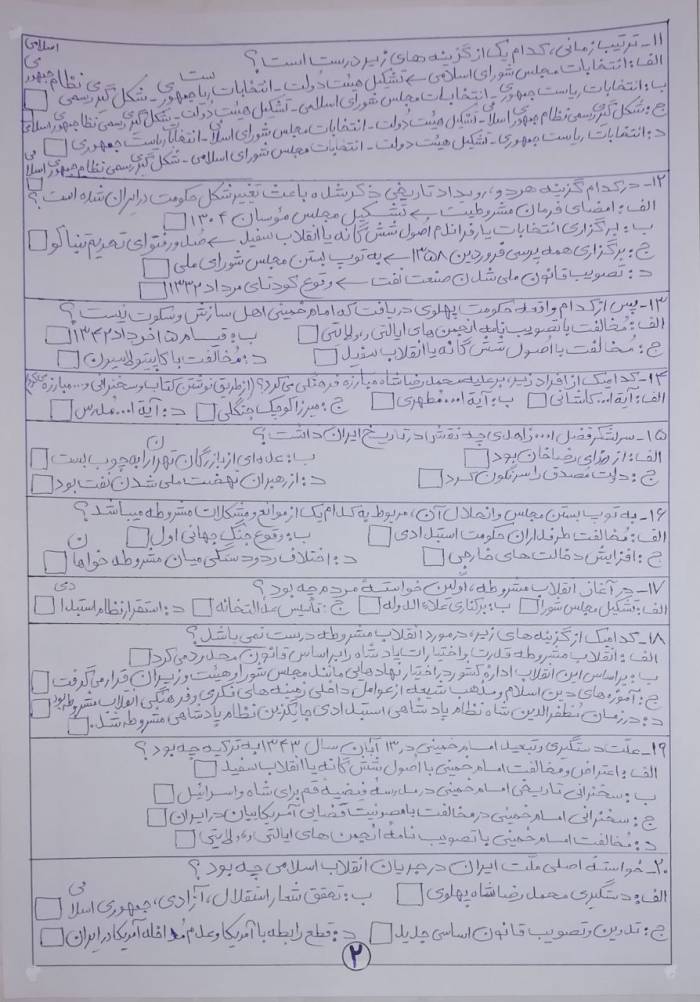 ۱۱- ترتیب زمانی، کدام یک از گزینه های زیر درست است؟
الف: انتخابات مجلس شورای اسلامی ← تشکیل هیئت دولت - انتخابات ریاست جمهوری - شکل گیری رسمی نظام جمهوری اسلامی
ب: انتخابات ریاست جمهوری - انتخابات مجلس شورای اسلامی - تشکیل هیئت دولت - شکل گیری رسمی نظام جمهوری اسلامی
ج: شکل گیری رسمی نظام جمهوری اسلامی - تشکیل هیئت دولت - انتخابات مجلس شورای اسلامی - انتخابات ریاست جمهوری
د: انتخابات ریاست جمهوری - تشکیل هیئت دولت - انتخابات مجلس شورای اسلامی - شکل گیری رسمی نظام جمهوری اسلامی
۱۲- در کدام گزینه هر دو رویداد تاریخی ذکر شده باعث تغییر شکل حکومت در ایران شده است؟
الف: امضای فرمان مشروطیت ← تشکیل مجلس مؤسسان ۱۳۰۴
ب: برگزاری انتخابات یا رفراندم اصول شش گانه یا انقلاب سفید ← صدور فتوای تحریم تنباکو
ج: برگزاری همه پرسی فروردین ۱۳۵۸ ← به توپ بستن مجلس شورای ملی
د: تصویب قانون ملی شدن صنعت نفت ← وقوع کودتای مرداد ۱۳۳۲
۱۳- پس از کدام واقعه حکومت پهلوی دریافت که امام خمینی اهل سازش و سکوت نیست؟
الف: مخالفت با تصویب نامه انجمن های ایالتی و ولایتی ب: قیام ۱۵ خرداد ۱۳۴۲
ج: مخالفت با اصول شش گانه یا انقلاب سفید د: مخالفت با کاپیتولاسیون
۱۴- کدامیک از افراد زیر، بر علیه محمدرضا شاه مبارزه فرهنگی می کرد؟ (از طریق نوشتن کتاب و سخنرانی و... مبارزه می کرد)
الف: آیة ا... کاشانی ب: آیة ا... مطهری ج: میرزا کوچک جنگلی د: آیة ا... مدرس
۱۵- سرلشکر فضل ا... زاهدی چه نقشی در تاریخ ایران داشت؟
الف: از وزرای رضاخان بود ب: عده ای از بازرگان تهران را به چوب بست
ج: دولت مصدق را سرنگون کرد د: از رهبران نهضت ملی شدن نفت بود
۱۶- به توپ بستن مجلس و انحلال آن، مربوط به کدام یک از موانع و مشکلات مشروطه میباشد؟
الف: مخالفت طرفداران حکومت استبدادی ب: وقوع جنگ جهانی اول
ج: افزایش دخالت های خارجی د: اختلاف و دودستگی میان مشروطه خواهان
۱۷- در آغاز انقلاب مشروطه، اولین خواستهٔ مردم چه بود؟
الف: تشکیل مجلس شورا ب: برکناری علاءالدوله ج: تأسیس عدالتخانه د: استقرار نظام استبدادی
۱۸- کدامیک از گزینه های زیر، در مورد انقلاب مشروطه درست نمی باشد؟
الف: انقلاب مشروطه قدرت و اختیارات پادشاه را بر اساس قانون محدود می کرد
ب: بر اساس این انقلاب ادارهٔ کشور در اختیار نهادهایی مانند مجلس شورا و هیئت وزیران قرار می گرفت
ج: آموزه های دین اسلام و مذهب شیعه از عوامل داخلی زمینه های فکری و فرهنگی انقلاب مشروطه بود
د: در زمان مظفرالدین شاه نظام پادشاهی استبدادی جایگزین نظام پادشاهی مشروطه شد.
۱۹- علت دستگیری و تبعید امام خمینی در ۱۳ آبان سال ۱۳۴۳ به ترکیه چه بود؟
الف: اعتراض و مخالفت امام خمینی با اصول شش گانه یا انقلاب سفید
ب: سخنرانی تاریخی امام خمینی در مدرسهٔ فیضیهٔ قم برای شاه و اسرائیل
ج: سخنرانی امام خمینی در مخالفت با مصونیت قضایی آمریکاییان در ایران
د: مخالفت امام خمینی با تصویب نامهٔ انجمن های ایالتی و ولایتی
۲۰- خواستهٔ اصلی ملت ایران در جریان انقلاب اسلامی چه بود؟
الف: دستگیری محمد رضا شاه پهلوی ب: تحقق شعار استقلال، آزادی، جمهوری اسلامی
ج: تدوین و تصویب قانون اساسی جدید د: قطع رابطه با آمریکا و عدم مداخله آمریکا در ایران
۲